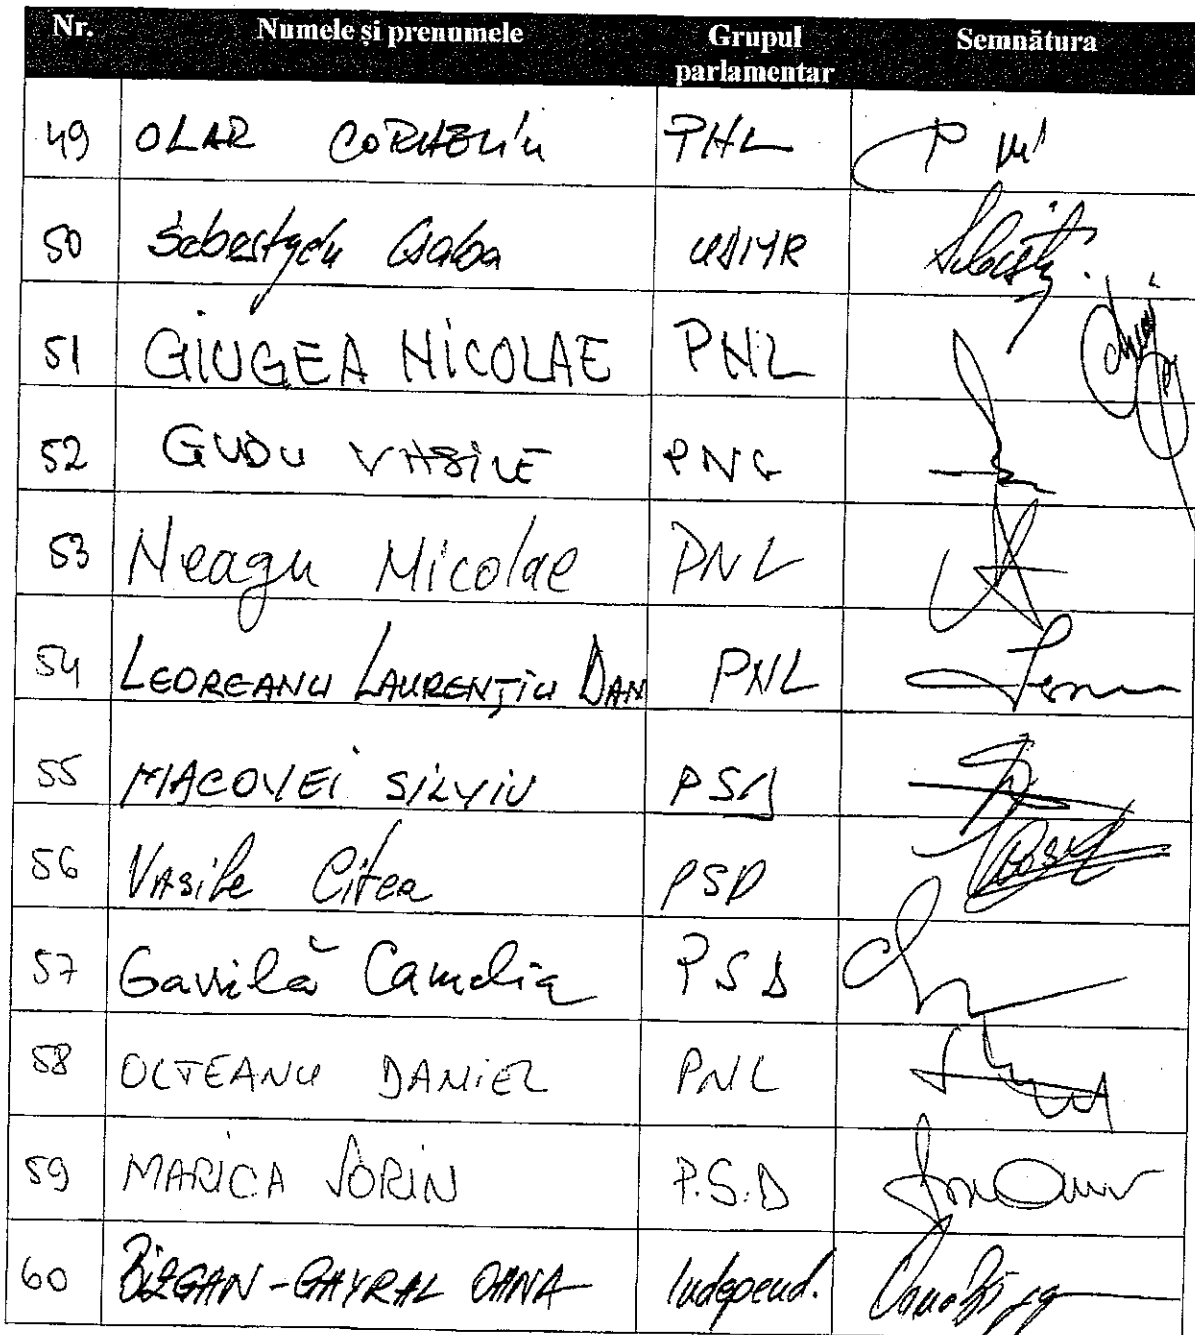 Nr. Numele și prenumele Grupul parlamentar Semnătura
49 OLAR CORNELIU PNL
50 Sebestyen Csaba UDMR
51 GIUGEA NICOLAE PNL
52 GUDU VASILE PNL
53 Neagu Nicolae PNL
54 LEOREANU LAURENȚIU DAN PNL
55 MACOVEI SILVIU PSD
56 VASILE Cîtea PSD
57 Gavrilă Camelia PSD
58 OLTEANU DANIEL PNL
59 MARICA SORIN P.S.D
60 BIZGAN-GAYRAL OANA Independ.